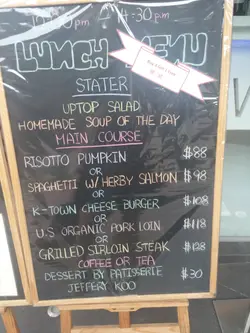 LUNCH MENU
STATER
UPTOP SALAD
HOMEMADE SOUP OF THE DAY
MAIN COURSE
RISOTTO PUMPKIN $88
OR
SPAGHETTI W/ HERBY SALMON $98
OR
K-TOWN CHEESE BURGER $108
OR
U.S ORGANIC PORK LOIN $118
OR
GRILLED SIRLOIN STEAK $128
COFFEE OR TEA
DESSERT BY PATISSERIE $30
JEFFERY KOO